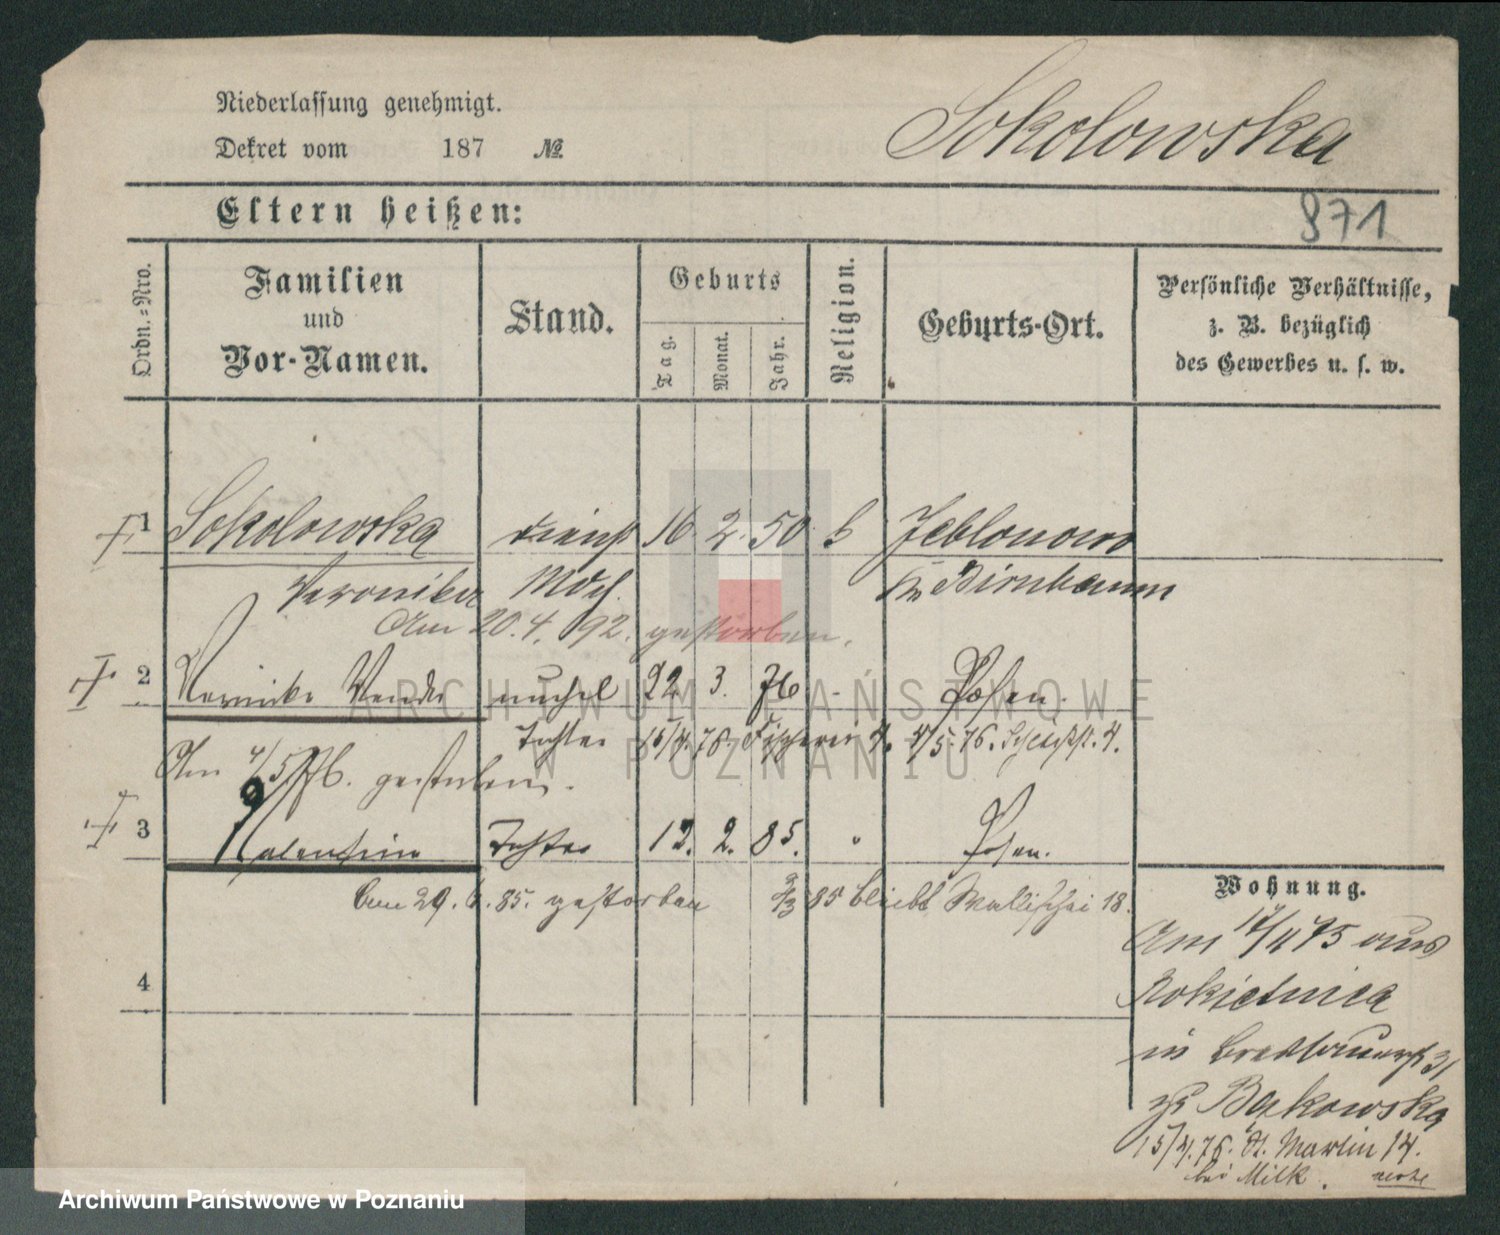 Niederlassung genehmigt.
Sokolowska
Dekret vom 187 №
Eltern heißen:
971
Ordn.-Nro.
Familien
und
Vor-Namen.
Stand.
Geburts
Tag.
Monat.
Jahr.
Religion.
Geburts-Ort.
Persönliche Verhältnisse,
z. B. bezüglich
des Gewerbes u. s. w.
1 Sokolowska Dienst 16 2. 50 Jeblonowo
Veronika Mdch. Birnbaum
Am 20.4. 92. gestorben.
2 22 3. 76 - Posen.
Tochter 15/4. 76. Fischerei 4. 4/5. 76.
Am 4/5 76. gestorben.
3 Valentine Tochter 12. 2. 85. " Posen.
am 29. 6. 85. gestorben 85 bleibt Wallischei 18.
4
Wohnung.
Am 17/11 75 aus
Rokietnica
in Breslauerst 31
Bąkowska
15/4. 76. St. Martin 14.
bei Milk.
ARCHIWUM PAŃSTWOWE
W POZNANIU
Archiwum Państwowe w Poznaniu